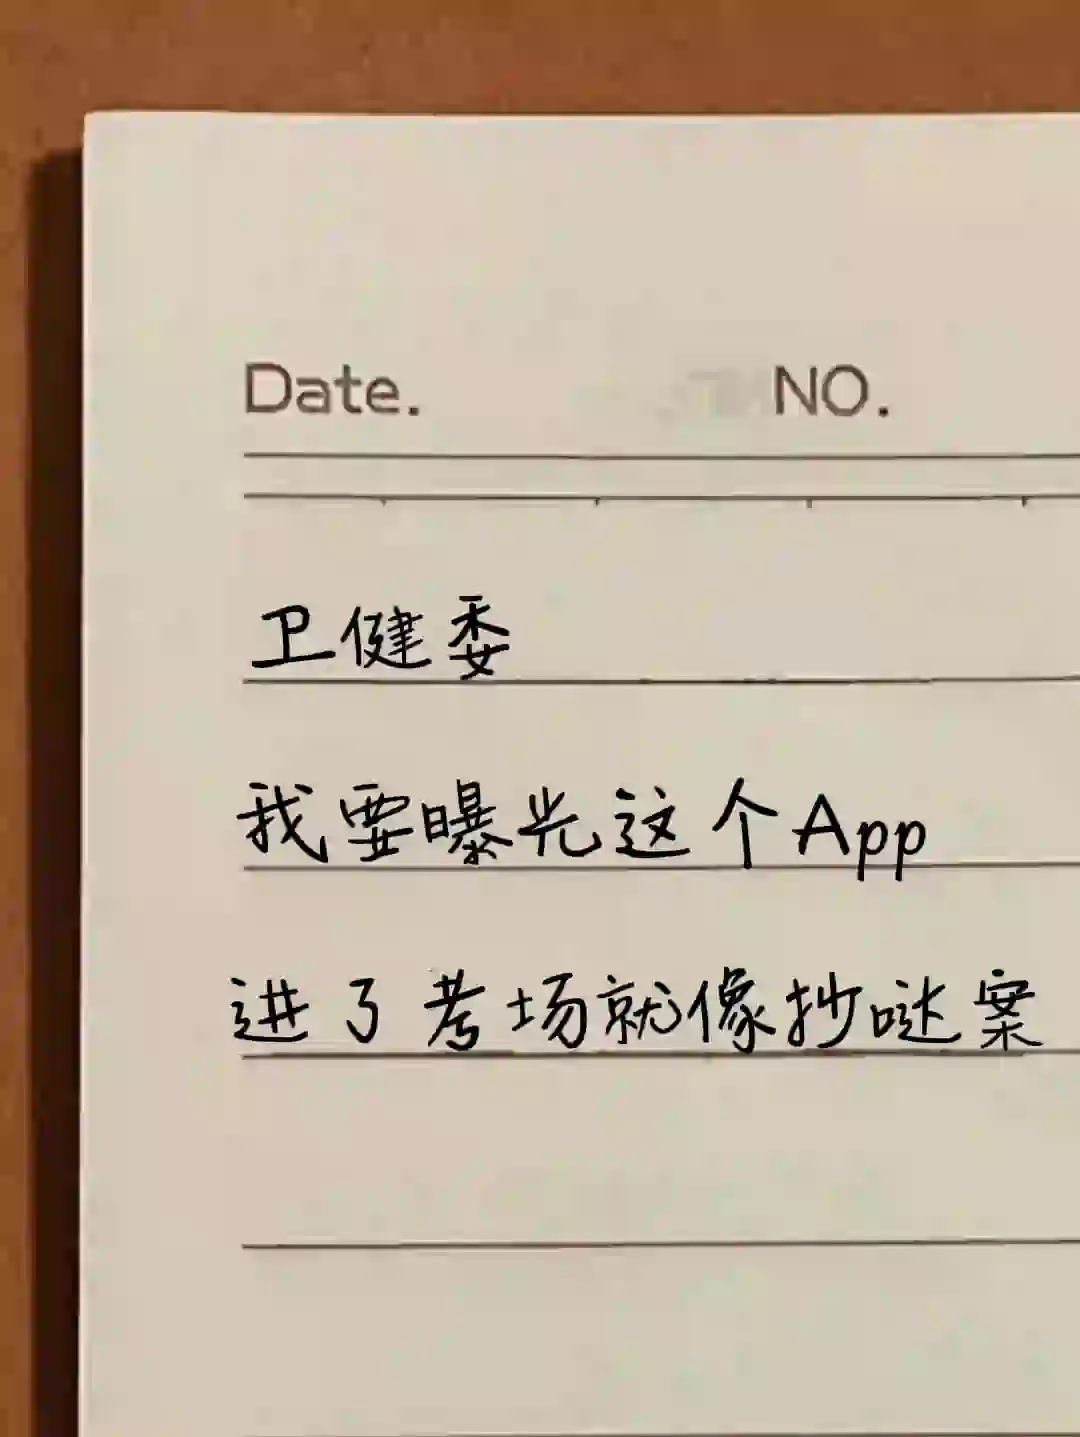 Date. NO.
卫健委
我要曝光这个App
进了考场就像抄哒案